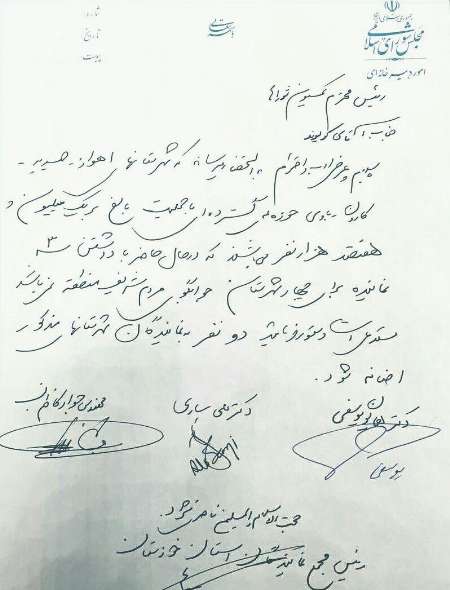 جمهوری اسلامی ایران
مجلس شورای اسلامی
امور دبیرخانه‌ای
شماره
تاریخ
پیوست
رئیس محترم کمسیون شوراها
جناب آقای کولیوند
سلام و عرض ادب و احترام به استحضار میرساند که شهرستانهای اهواز - حمیدیه -
کارون - باوی حوزه‌ی گسترده‌ای با جمعیت بالغ بر یک میلیون و
هفتصد هزار نفر می‌باشند که در حال حاضر با داشتن ۳
نماینده برای چهار شهرستان جوابگوی مردم شریف منطقه نمی‌باشد
مستدعی است دستور فرمائید دو نفر به نمایندگان شهرستانهای مذکور
اضافه شود.
دکتر همایون یوسفی
دکتر علی ساری
مهندس جواد کاظم نسب
یوسفی
حجت الاسلام والمسلمین ناصری نژاد
رئیس مجمع نمایندگان استان خوزستان